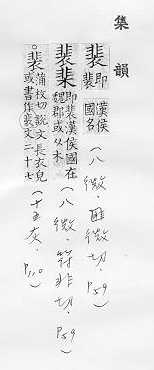 集韻
裴 即裴漢侯國名（八微．匪微切．P.59）
裴𣐹 即裴漢侯國在魏郡或从木（八微．符非切．P.59）
○裴 蒲枚切說文長衣皃或書作裵文二十七（十五灰．P110．）